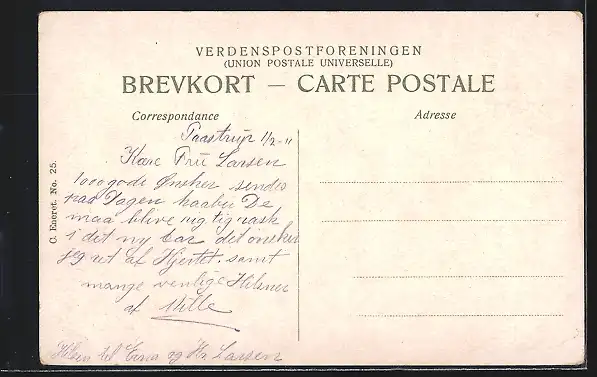 VERDENSPOSTFORENINGEN
(UNION POSTALE UNIVERSELLE)
BREVKORT — CARTE POSTALE
Correspondance
Adresse
Taastrup 1/2-11
Kære Frü Larsen
1000 gode Ønsker sendes
paa Dagen haaber De
maa blive rigtig rask
i det ny Aar det ønsker
jeg ret af Hjertet. samt
mange venlige Hilsner
af Mille
Hilsen til Erna og Hr Larsen
C. Eneret. No. 25.